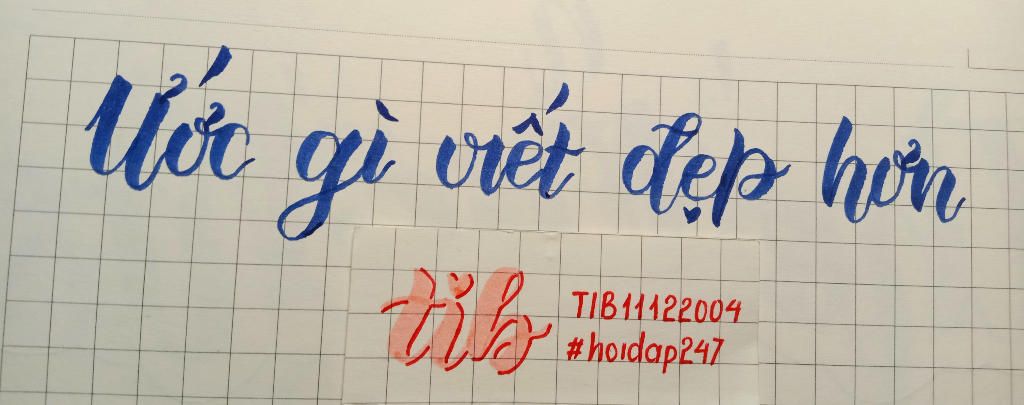 Ước gì viết đẹp hơn
tib
TIB11122004
#hoidap247